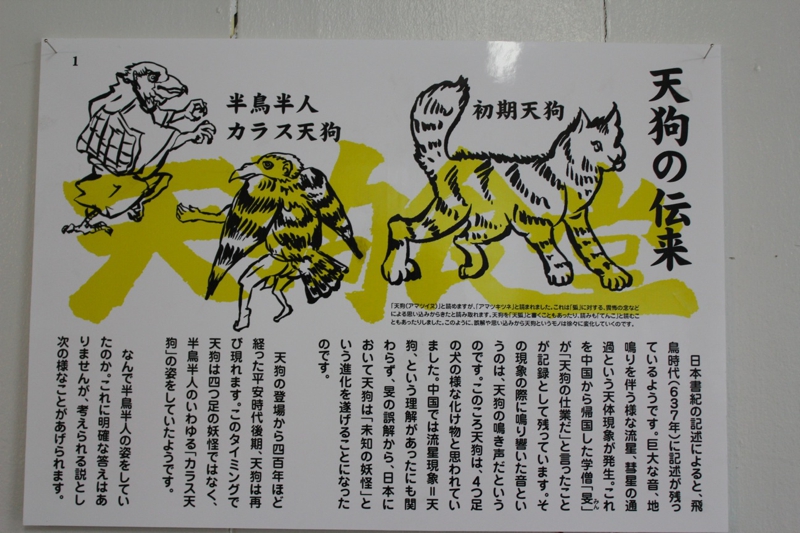 1
天狗の伝来
初期天狗
半鳥半人
カラス天狗
「天狗(アマツイヌ)」と読めますが、「アマツキツネ」と読まれました。これは「狐」に対する、畏怖の念など
による思い込みからきたと読み取れます。天狗を「天狐」と書くこともあったり、読みも「てんこ」と読むこ
ともあったりしました。このように、誤解や思い込みから天狗というモノは徐々に変化していくのです。
日本書紀の記述によると、飛
鳥時代(637年)に記述が残っ
ているようです。巨大な音、地
鳴りを伴う様な流星、彗星の通
過という天体現象が発生。これ
を中国から帰国した学僧「旻」
みん
が「天狗の仕業だ」と言ったこと
が記録として残っています。そ
の現象の際に鳴り響いた音とい
うのは、天狗の鳴き声だという
のです。このころ天狗は、4つ足
の犬の様な化け物と思われてい
ました。中国では流星現象=天
狗、という理解があったにも関
わらず、旻の誤解から、日本に
おいて天狗は「未知の妖怪」と
いう進化を遂げることになった
のです。
天狗の登場から四百年ほど
経った平安時代後期、天狗は再
び現れます。このタイミングで
天狗は四つ足の妖怪ではなく、
半鳥半人のいわゆる「カラス天
狗」の姿をしていたようです。
なんで半鳥半人の姿をしてい
たのか。これに明確な答えはあ
りませんが、考えられる説とし
次の様なことがあげられます。